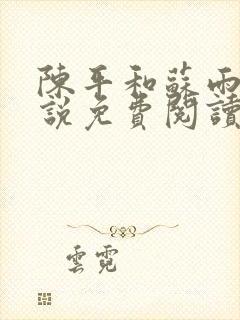 陳平和蘇雨
說免費閱讀
雲霓